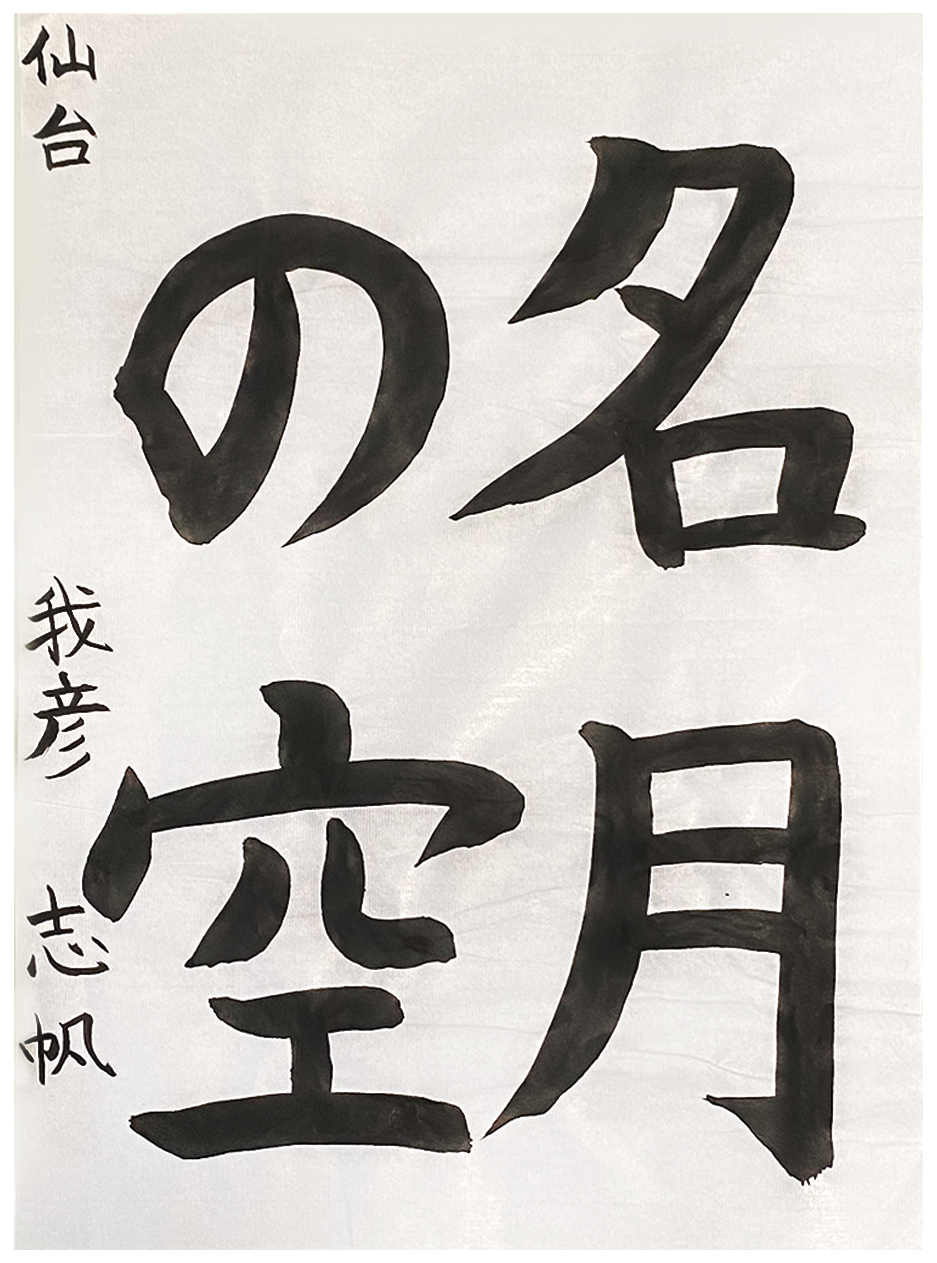 名月
の空
仙台 我彦 志帆